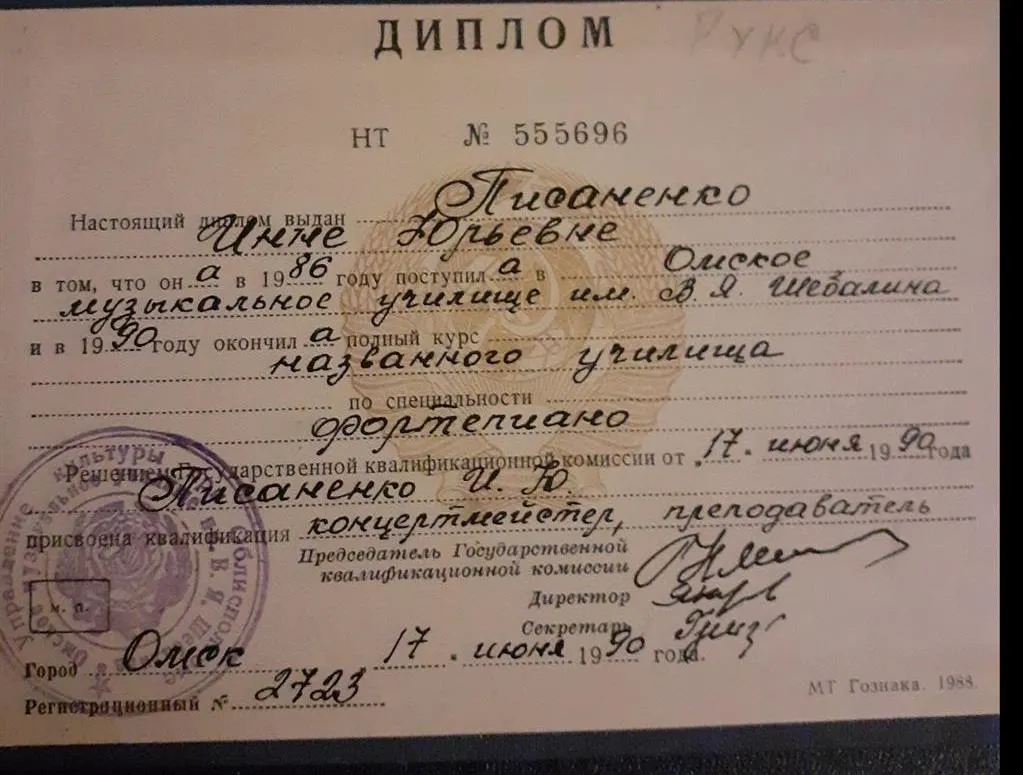 ДИПЛОМ
НТ № 555696
Настоящий диплом выдан Писаненко
Инне Юрьевне
в том, что он а в 1986 году поступил а в Омское
музыкальное училище им. В. Я. Шебалина
и в 1990 году окончил а полный курс
названного училища
по специальности
фортепиано
Решением Государственной квалификационной комиссии от 17 июня 1990 года
Писаненко И. Ю.
присвоена квалификация концертмейстер, преподаватель
Председатель Государственной
квалификационной комиссии
Директор
Секретарь
М. П.
Город Омск 17 июня 1990 года.
Регистрационный № 2723
МТ Гознака. 1988.